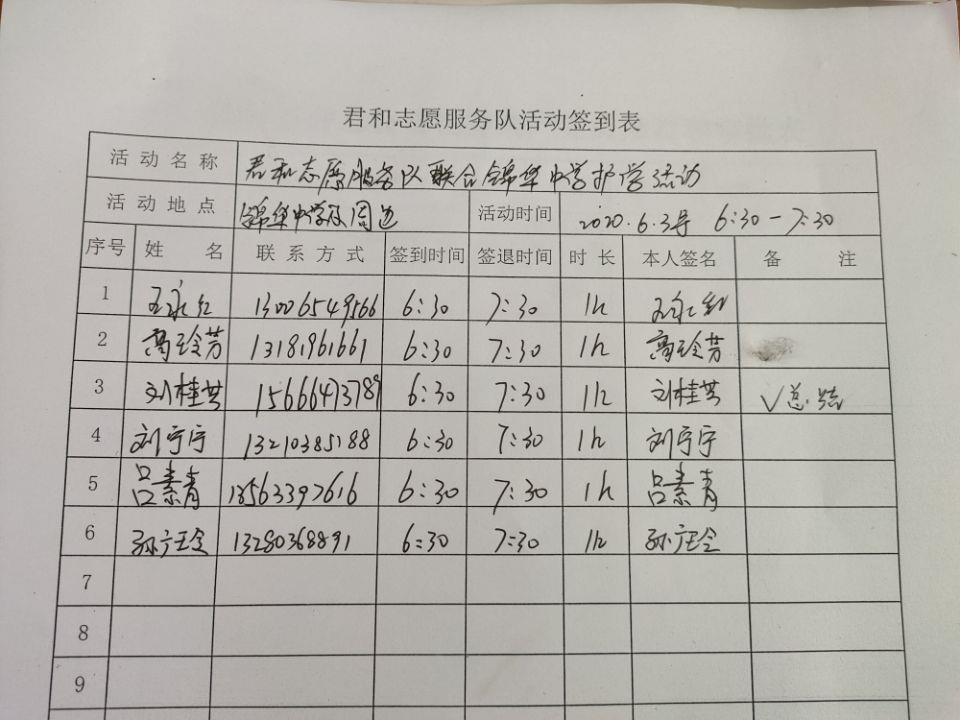 君和志愿服务队活动签到表
活动名称 君和志愿服务队联合锦华中学护学活动
活动地点 锦华中学及周边 活动时间 2020.6.3号 6:30-7:30
序号 姓名 联系方式 签到时间 签退时间 时长 本人签名 备注
1 王永红 13006549566 6:30 7:30 1h 王永红
2 高玲芳 13181961661 6:30 7:30 1h 高玲芳
3 刘桂芸 15666473789 6:30 7:30 1h 刘桂芸 √总结
4 刘宁宁 13210385188 6:30 7:30 1h 刘宁宁
5 吕素青 18563397616 6:30 7:30 1h 吕素青
6 孙广玲 13280368891 6:30 7:30 1h 孙广玲
7
8
9